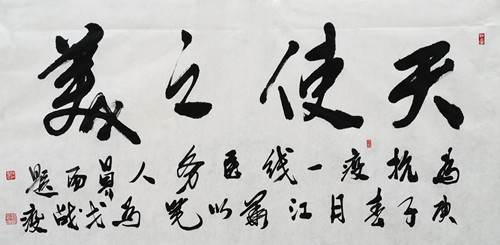 天使之美
为抗疫一线医务人员而题
庚子春月江萧以笔为戈战疫